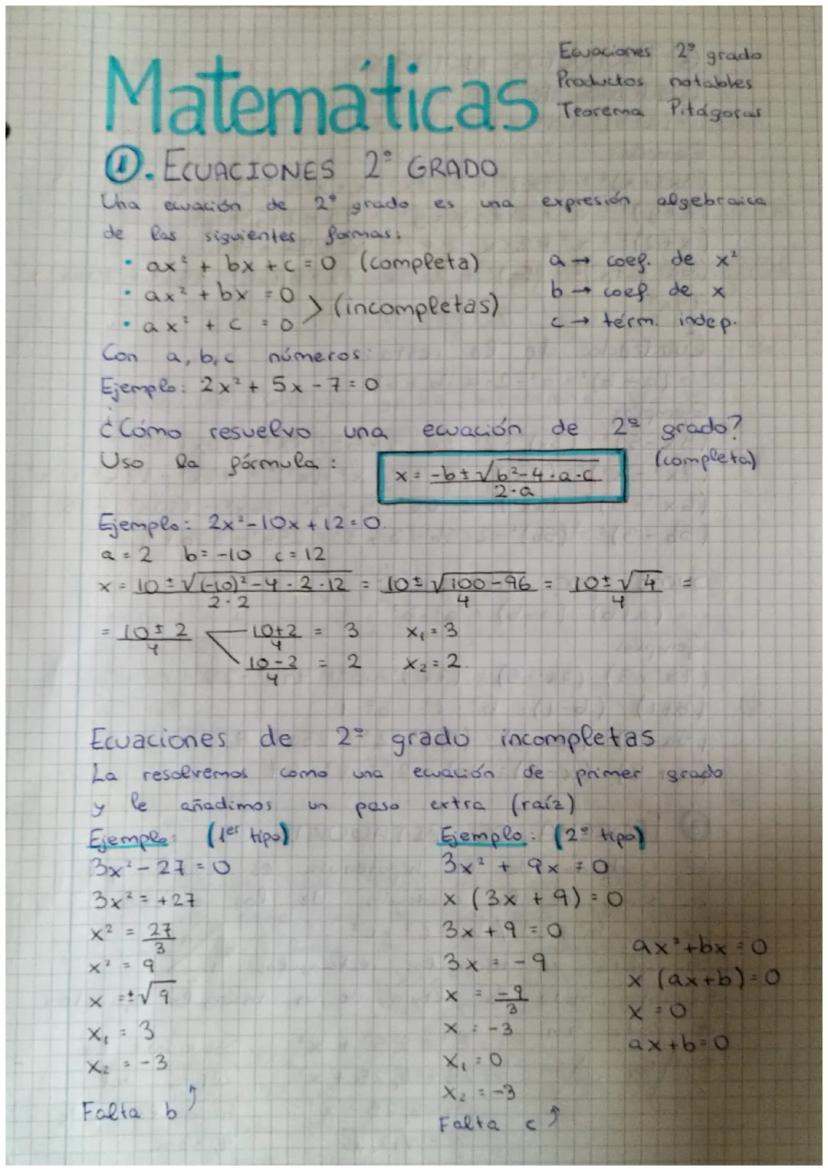 Matemáticas
Ecuaciones 2º grado
Productos notables
Teorema Pitágoras
①. ECUACIONES 2º GRADO
Una ecuación de 2º grado es una expresión algebraica
de las siguientes formas:
• ax² + bx + c = 0 (completa)
• ax² + bx = 0
• ax² + c = 0
(incompletas)
a → coef. de x²
b → coef. de x
c → térm. indep.
Con a, b, c números.
Ejemplo: 2x² + 5x - 7 = 0
¿Cómo resuelvo una ecuación de 2ª grado?
Uso la fórmula: x = -b ± √b²-4·a·c / 2·a (completa)
Ejemplo: 2x² - 10x + 12 = 0
a = 2 b = -10 c = 12
x = 10 ± √(-10)² - 4 · 2 · 12 / 2·2 = 10 ± √100-96 / 4 = 10 ± √4 / 4 =
= 10 ± 2 / 4
10+2 / 4 = 3 x₁ = 3
10-2 / 4 = 2 x₂ = 2
Ecuaciones de 2º grado incompletas
La resolvemos como una ecuación de primer grado
y le añadimos un paso extra (raíz)
Ejemplo: (1er tipo)
3x² - 27 = 0
3x² = +27
x² = 27/3
x² = 9
x = ±√9
x₁ = 3
x₂ = -3
Falta b
Ejemplo: (2º tipo)
3x² + 9x = 0
x (3x + 9) = 0
3x + 9 = 0
3x = -9
x = -9/3
x = -3
x₁ = 0
x₂ = -3
Falta c
ax² + bx = 0
x (ax+b) = 0
x = 0
ax + b = 0